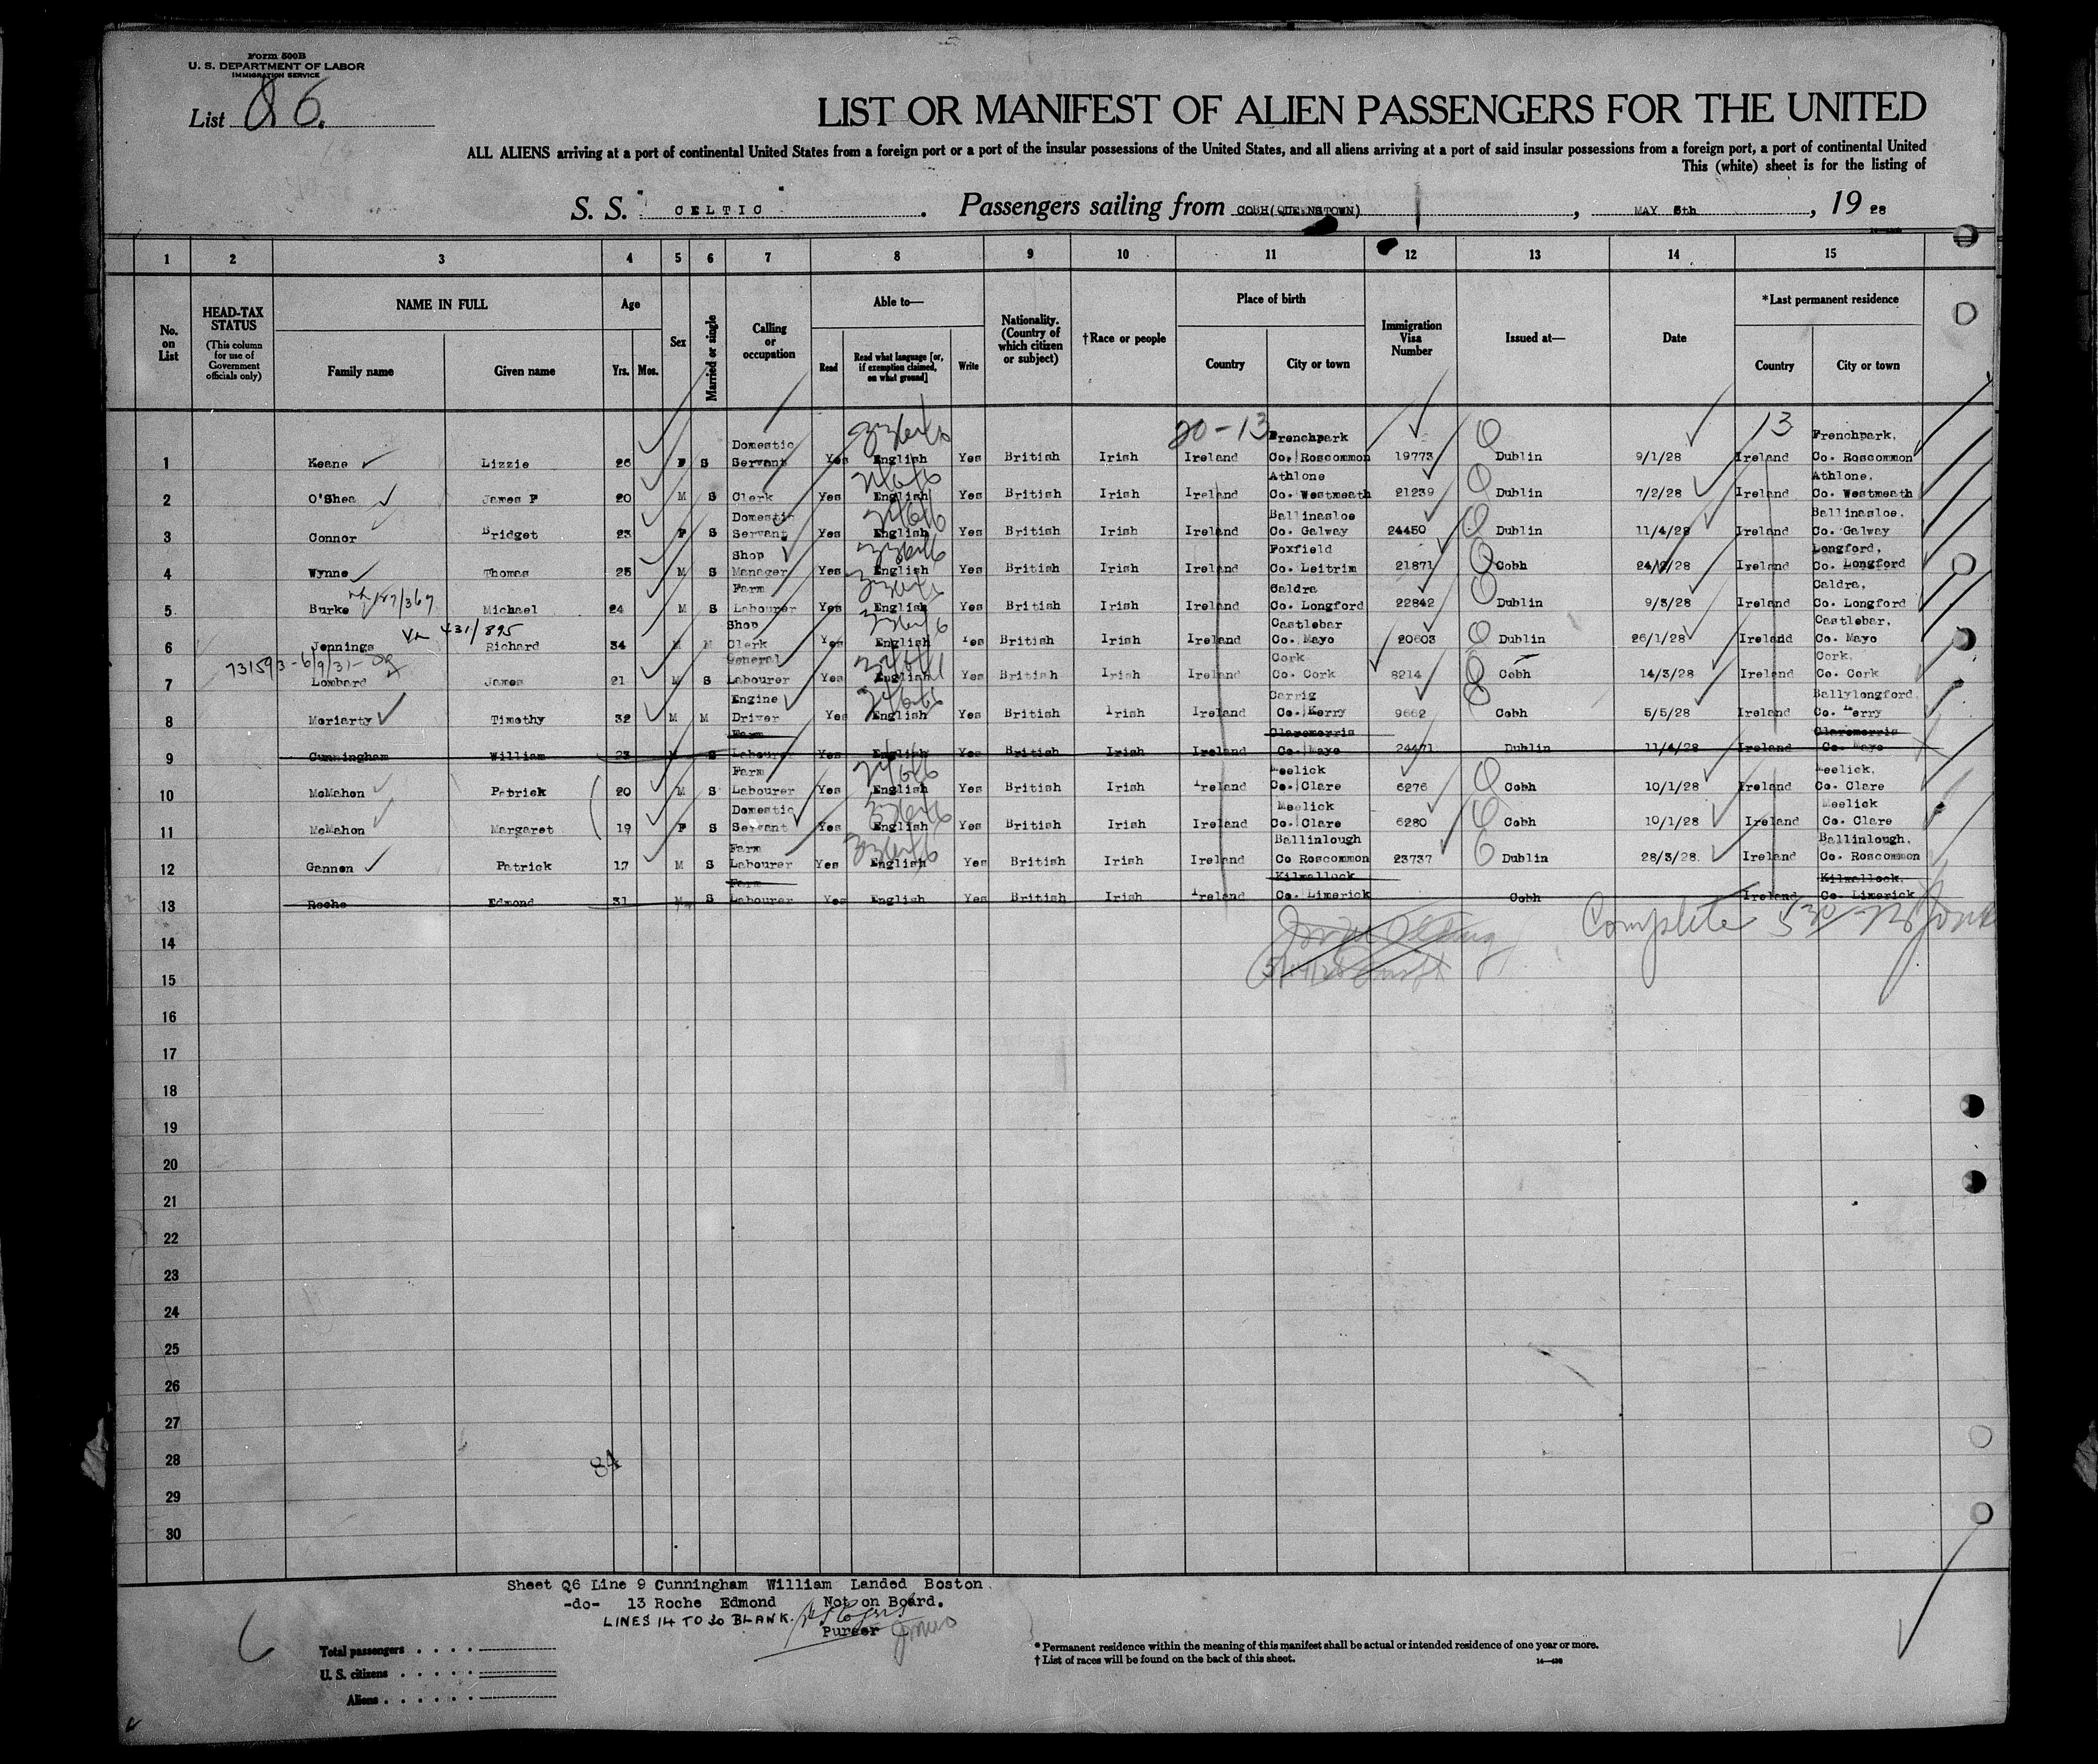 Form 500B
U. S. DEPARTMENT OF LABOR
IMMIGRATION SERVICE
List Q6.
LIST OR MANIFEST OF ALIEN PASSENGERS FOR THE UNITED
ALL ALIENS arriving at a port of continental United States from a foreign port or a port of the insular possessions of the United States, and all aliens arriving at a port of said insular possessions from a foreign port, a port of continental United
This (white) sheet is for the listing of
S. S. "CELTIC". Passengers sailing from COBH(QUEENSTOWN), MAY 6th, 1928
1 2 3 4 5 6 7 8 9 10 11 12 13 14 15
No. on List
HEAD-TAX STATUS (This column for use of Government officials only)
NAME IN FULL
Family name Given name
Age
Yrs. Mos.
Sex
Married or single
Calling or occupation
Able to—
Read
Read what language [or, if exemption claimed, on what ground]
Write
Nationality. (Country of which citizen or subject)
†Race or people
Place of birth
Country City or town
Immigration Visa Number
Issued at—
Date
*Last permanent residence
Country City or town
20-13 13
1 Keane Lizzie 26 F S Domestic Servant Yes English Yes British Irish Ireland Frenchpark Co. Roscommon 19773 Dublin 9/1/28 Ireland Frenchpark, Co. Roscommon
2 O'Shea James P 20 M S Clerk Yes English Yes British Irish Ireland Athlone Co. Westmeath 21239 Dublin 7/2/28 Ireland Athlone, Co. Westmeath
3 Connor Bridget 23 F S Domestic Servant Yes English Yes British Irish Ireland Ballinasloe Co. Galway 24450 Dublin 11/4/28 Ireland Ballinasloe, Co. Galway
4 Wynne Thomas 25 M S Shop Manager Yes English Yes British Irish Ireland Foxfield Co. Leitrim 21871 Cobh 24/2/28 Ireland Longford, Co. Longford
5 Burke 187/367 Michael 24 M S Farm Labourer Yes English Yes British Irish Ireland Caldra Co. Longford 22842 Dublin 9/3/28 Ireland Caldra, Co. Longford
6 Jennings 431/895 Richard 34 M M Shop Clerk Yes English Yes British Irish Ireland Castlebar Co. Mayo 20603 Dublin 26/1/28 Ireland Castlebar, Co. Mayo
731593-6/9/31-
7 Lombard James 21 M S General Labourer Yes English Yes British Irish Ireland Cork Co. Cork 8214 Cobh 14/3/28 Ireland Cork, Co. Cork
8 Moriarty Timothy 32 M M Engine Driver Yes English Yes British Irish Ireland Carrig Co. Kerry 9662 Cobh 5/5/28 Ireland Ballylongford Co. Kerry
9 Cunningham William 23 M S Farm Labourer Yes English Yes British Irish Ireland Claremorris Co. Mayo 24471 Dublin 11/4/28 Ireland Claremorris Co. Mayo
10 McMahon Patrick 20 M S Farm Labourer Yes English Yes British Irish Ireland Meelick Co. Clare 6276 Cobh 10/1/28 Ireland Meelick, Co. Clare
11 McMahon Margaret 19 F S Domestic Servant Yes English Yes British Irish Ireland Meelick Co. Clare 6280 Cobh 10/1/28 Ireland Meelick Co. Clare
12 Gannon Patrick 17 M S Farm Labourer Yes English Yes British Irish Ireland Ballinlough Co Roscommon 23737 Dublin 28/3/28. Ireland Ballinlough, Co. Roscommon
13 Roche Edmond 31 M S Farm Labourer Yes English Yes British Irish Ireland Kilmallock Co. Limerick Cobh Ireland Kilmallock, Co. Limerick
14 Complete
15
16
17
18
19
20
21
22
23
24
25
26
27
28 84
29
30
Sheet Q6 Line 9 Cunningham William Landed Boston.
-do- 13 Roche Edmond Not on Board.
LINES 14 TO 30 BLANK.
Purser
Total passengers
U. S. citizens
Aliens
* Permanent residence within the meaning of this manifest shall be actual or intended residence of one year or more.
† List of races will be found on the back of this sheet.